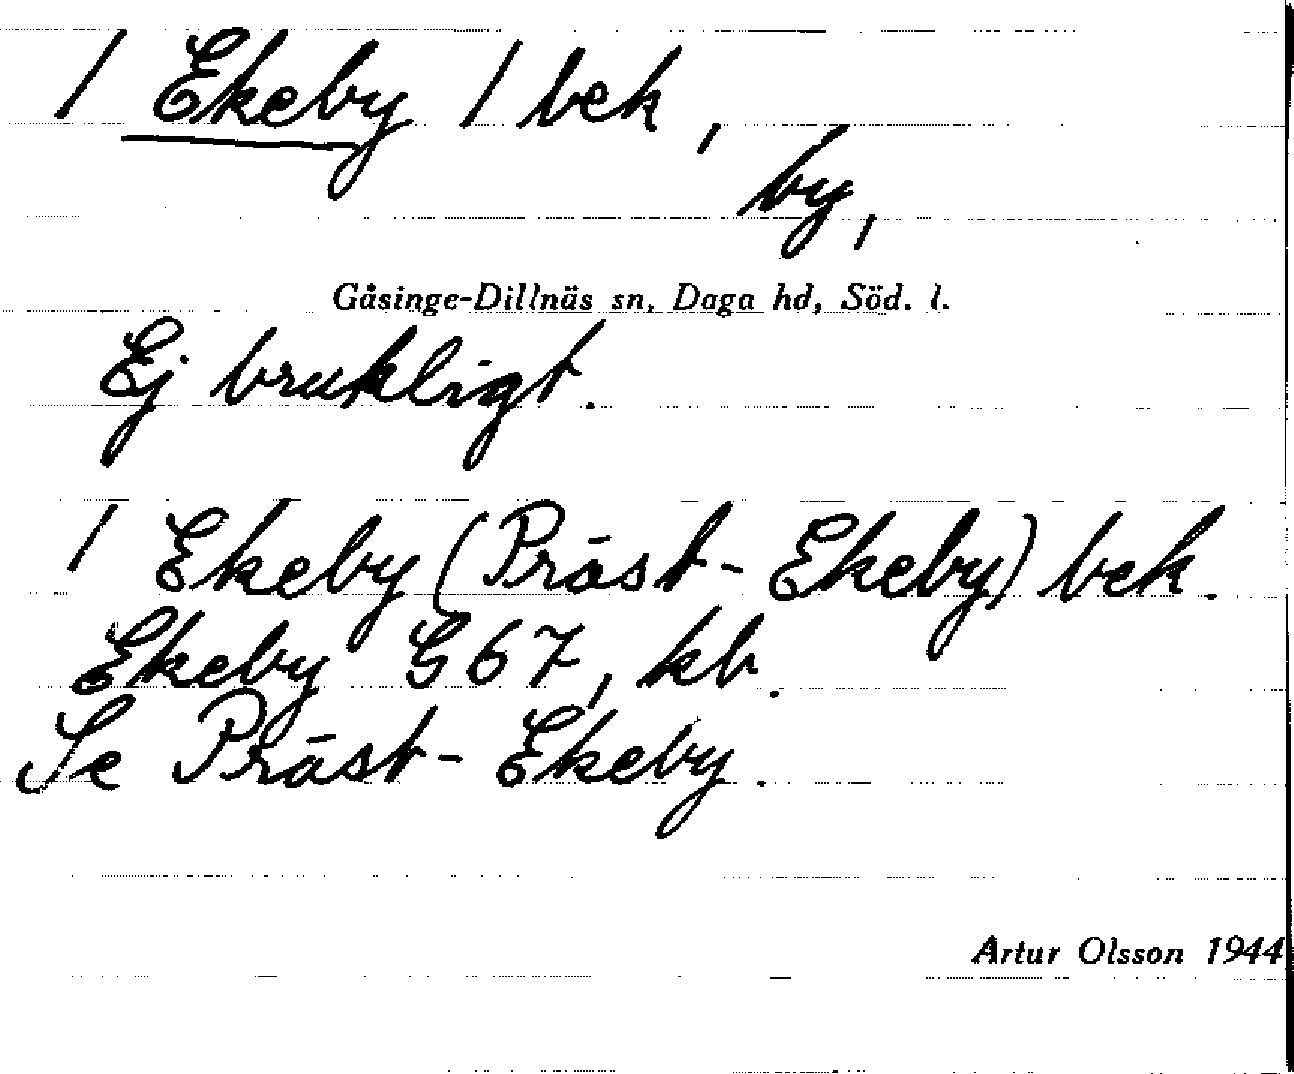 / Ekeby / bek,
by,
Gåsinge-Dillnäs sn, Daga hd, Söd. l.
Ej brukligt.
/ Ekeby (Präst-Ekeby) bek.
Ekeby G67, kb.
Se Präst-Ekeby.
Artur Olsson 1944